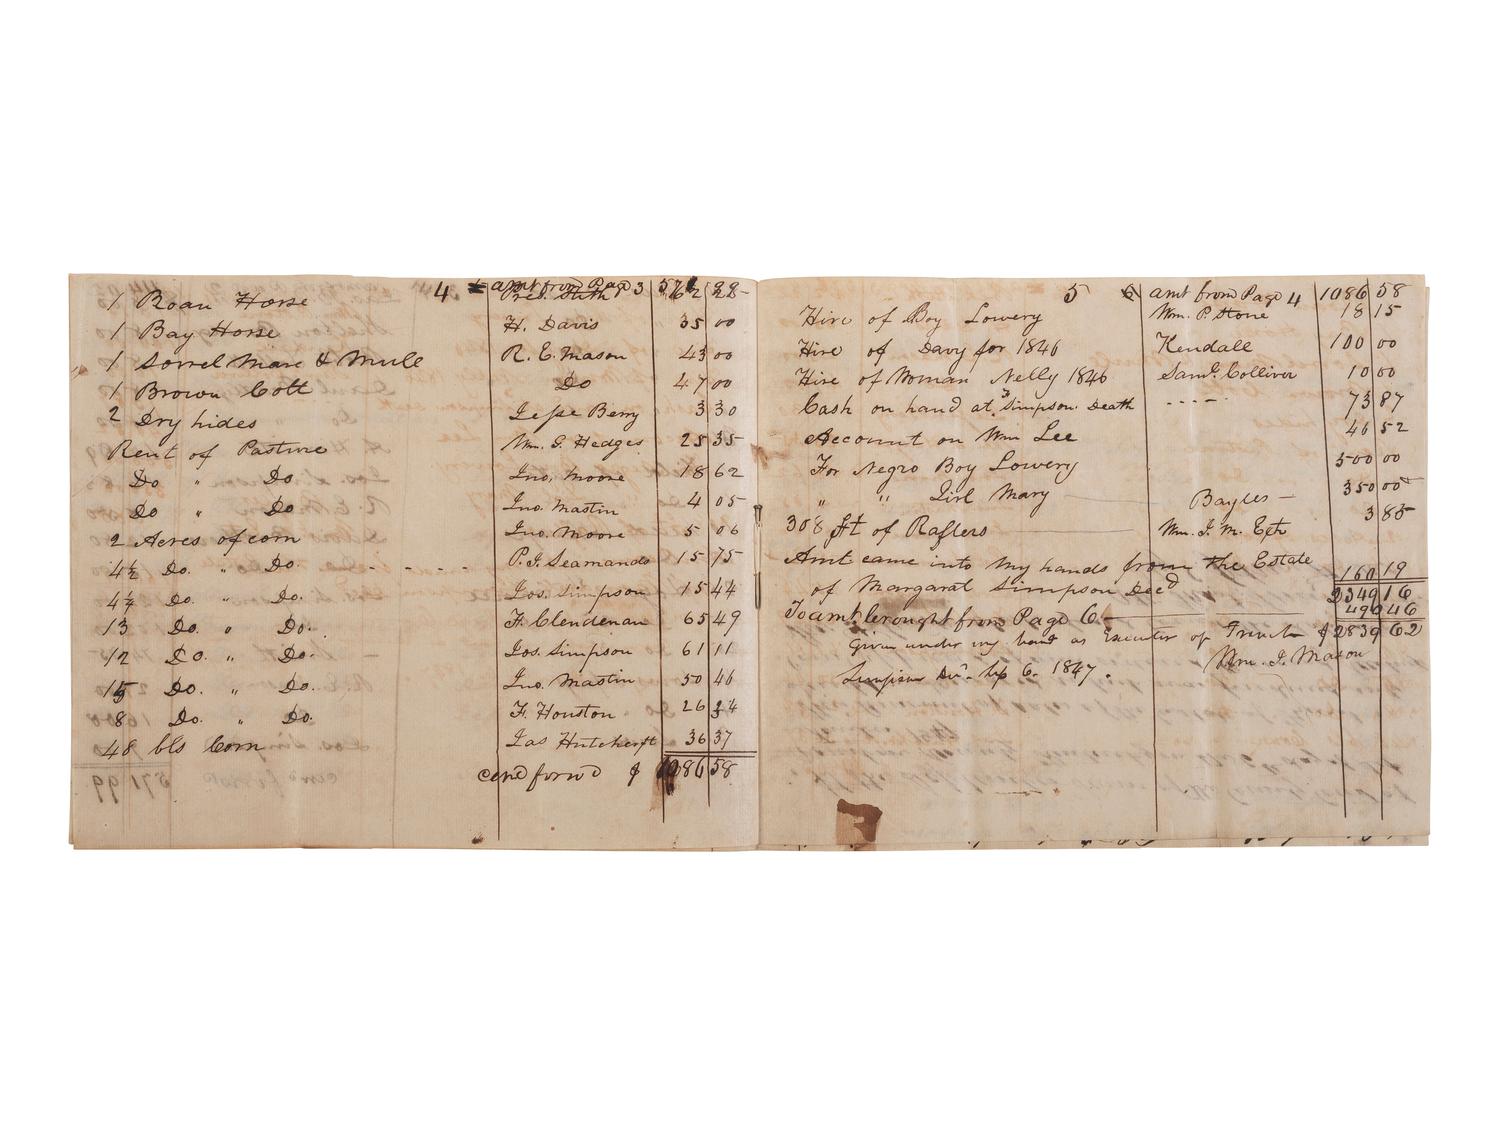 4 amt from Page 3 571
1 Roan Horse Pres. 62
1 Bay Horse H. Davis 35 00
1 Sorrel Mare & Mule R. E. Mason 43 00
1 Brown Colt Do 47 00
2 Dry hides Jesse Berry 3 30
Rent of Pasture Wm. G. Hedges 25 35
Do " Do Jno. Moore 18 62
Do " Do Jno. Mastin 4 05
2 Acres of corn Jno. Moore 5 06
4½ Do. " Do. - - - - P. J. Seamands 15 75
4¼ Do. " Do. Jos. Simpson 15 44
13 Do. " Do. F. Clendenan 65 49
12 Do. " Do. Jos. Simpson 61 11
15 Do. " Do. Jno. Mastin 50 46
8 Do. " Do. F. Houston 26 24
48 bls Corn Jas Hutchcrft 36 37
card forwd $ 1086 58
5 6 amt from Page 4 1086 58
Hire of Boy Lowery Wm. P. Stone 18 15
Hire of Davy for 1846 Kendall 100 00
Hire of Woman Nelly 1846 Saml. Colliver 10 00
Cash on hand at Simpson Death - - - - 73 87
Account on Wm Lee 46 52
For Negro Boy Lowery 500 00
" " Girl Mary Bayles 350 00
308 ft of Rafters Wm. J. M. Est 3 85
Amt came into my hands from the Estate
of Margarat Simpson Decd 160 19
2349 16
To amt. brought from Page 6 490 46
Given under my hand as Executor of French $ 2839 62
Simpson Dec. Sep 6. 1847. Wm. J. Mason